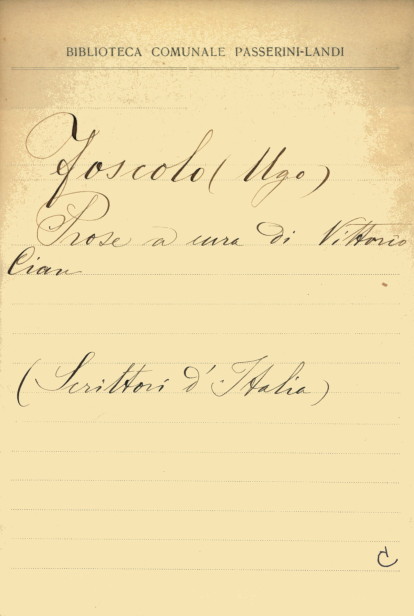 BIBLIOTECA COMUNALE PASSERINI-LANDI
Foscolo (Ugo)
Prose a cura di Vittorio
Cian
(Scrittori d'Italia)
C